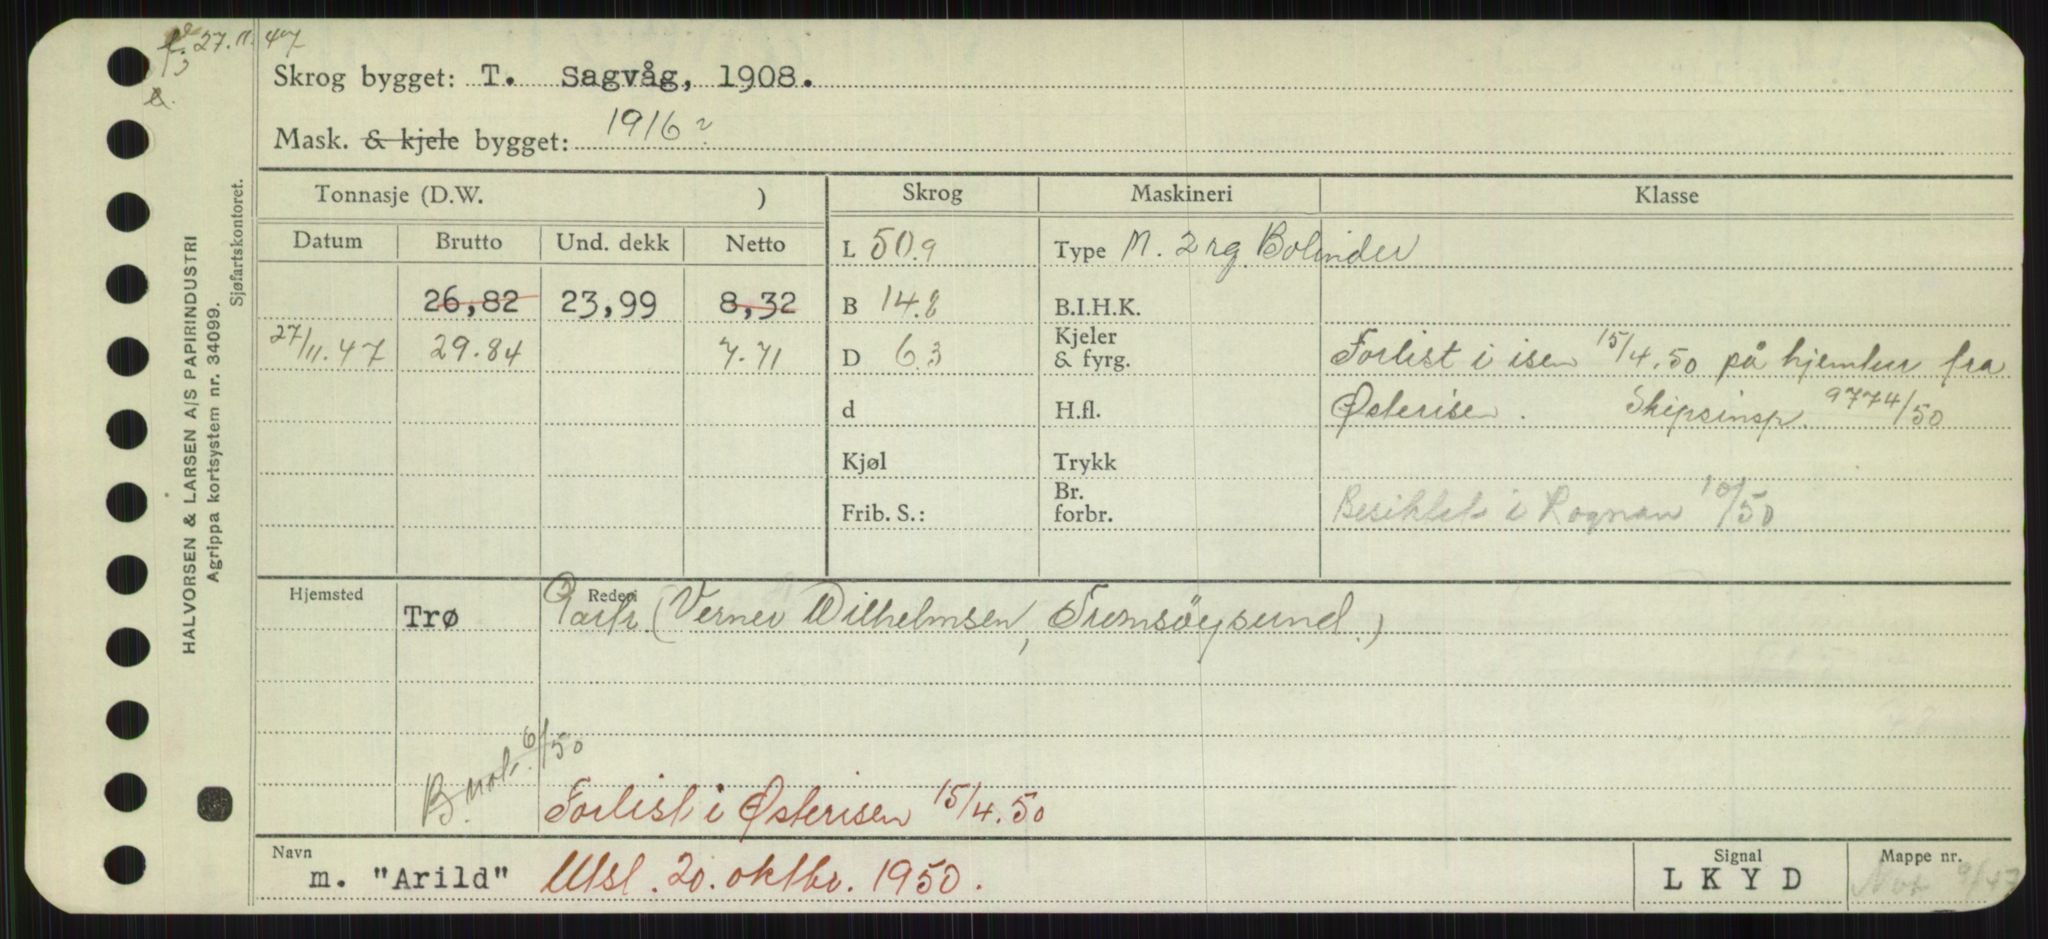 27.11.47
Skrog bygget: T. Sagvåg, 1908.
Mask. & kjele bygget: 1916?
Tonnasje (D.W. ) Skrog Maskineri Klasse
Datum Brutto Und. dekk Netto L 50.9 Type M. 2 rg Bolinder
26,82 23,99 8,32 B 14.8 B.I.H.K.
27/11.47 29.84 7.71 D 6.3 Kjeler & fyrg. Forlist i isen 15/4.50 på hjemtur fra
d H.fl. Østerisen. Skipsinsp. 9774/50
Kjøl Trykk
Frib. S.: Br. forbr. Besiktet i Rognan 10/50
Hjemsted Rederi
Trø Partr. (Verner Wilhelmsen, Tromsöysund.)
B. not. 6/50
Forlist i Østerisen 15/4.50
Navn Signal Mappe nr.
m. "Arild" Utsl. 20. oktbr. 1950. LKYD 9/47
HALVORSEN & LARSEN A/S PAPIRINDUSTRI
Agrippa kortsystem nr. 34099.
Sjøfartskontoret.